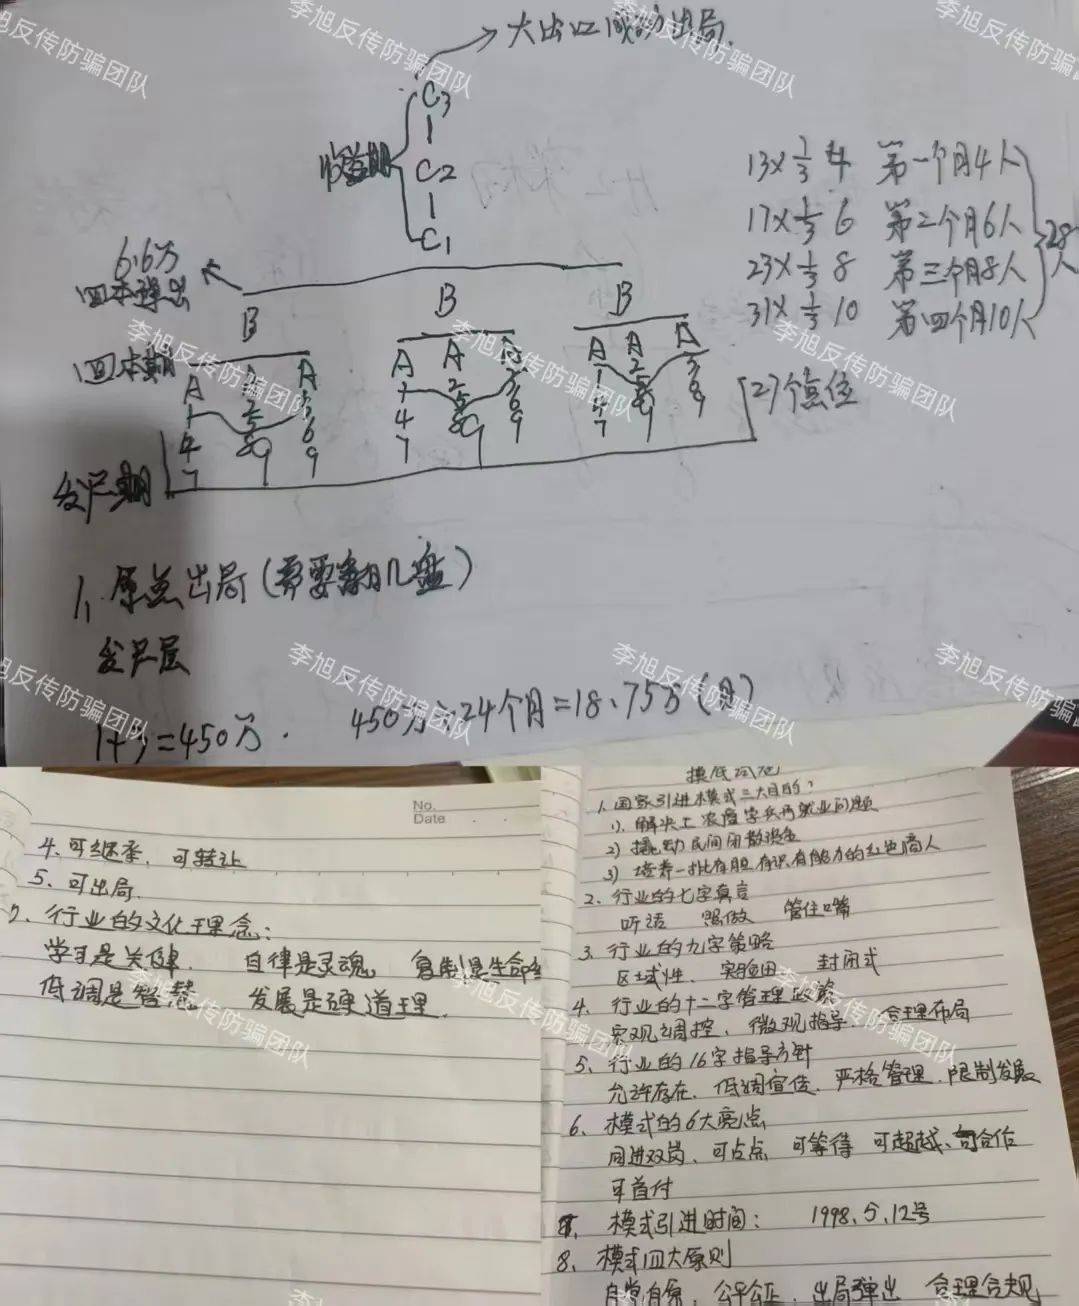 大出口成功出局.
C3
收益期
C2
C1
13×1/3 4 第一个月4人
17×1/3 6 第二个月6人
23×1/3 8 第三个月8人
31×1/3 10 第四个月10人
28人
6.6万
回本弹出
B B B
回本期
A A A A A A A A
1 2 3 1 2 3 1 2 3
4 5 6 4 5 6 4 5 6
7 8 9 7 8 9 7 8 9
27个点位
发展期
1、原点出局(需要翻几盘)
发展层
1+3=450万.
450万÷24个月=18.75万(月)
No.
Date
4、可继承、可转让
5、可出局.
7、行业的文化理念:
学习是关键. 自律是灵魂, 复制是生命线
低调是智慧 发展是硬道理.
摸底试卷
1、国家引进模式三大目的?
1)、解决工农商学兵再就业问题
2) 撬动民间闲散资金
3) 培养一批有胆有识有能力的红色商人
2、行业的七字真言
听话 照做 管住嘴
3、行业的九字策略
区域性、实验田 封闭式
4、行业的十二字管理政策
宏观调控、微观指导、合理布局
5、行业的16字指导方针
允许存在、低调宣传、严格管理、限制发展
6、模式的6大亮点
同进双岗、可占点 可等待 可超越、可合作
可首付
7、模式引进时间: 1998、5、12号
8、模式四大原则
自觉自愿、公平公正、出局弹出 合理合规
李旭反传防骗团队